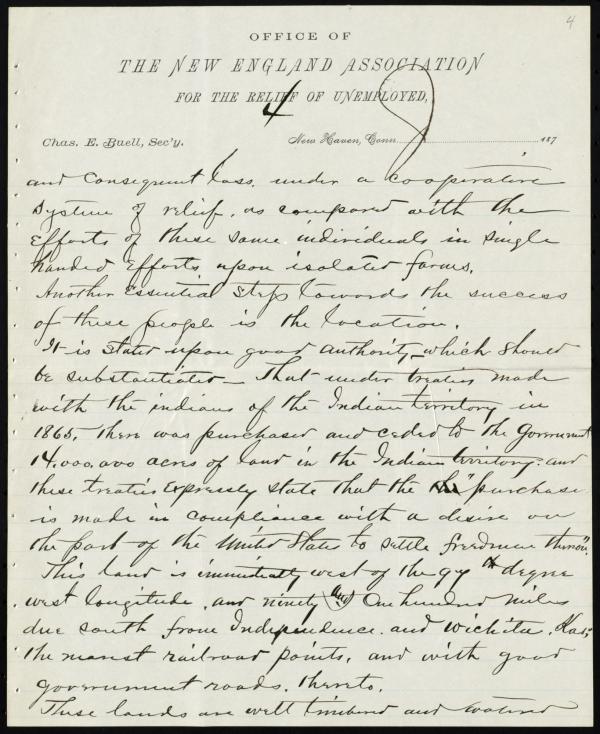 4
OFFICE OF
THE NEW ENGLAND ASSOCIATION
FOR THE RELIEF OF UNEMPLOYED,
4
Chas. E. Buell, Sec'y. New Haven, Conn. 187
and Consequent loss, under a cooperative
System of relief, as compared with the
Efforts of these same individuals in single
handed Efforts, upon isolated farms.
Another Essential Step towards the success
of these people is the location.
It is Stated upon good authority, which should
be substantiated – That under treaties made
with the indians of the Indian territory in
1865, there was purchased and ceded to the Government
14,000,000 acres of land in the Indian territory: and
these treaties Expressly state that the "purchase
is made in compliance with a desire on
the part of the United States to settle freedmen thereon".
This land is immediately west of the 97 degree
west longitude, and ninety (and) One hundred miles
due south from Independence, and Wichita, Kas,
the nearest railroad points, and with good
government roads, thereto.
These lands are well timbered and watered